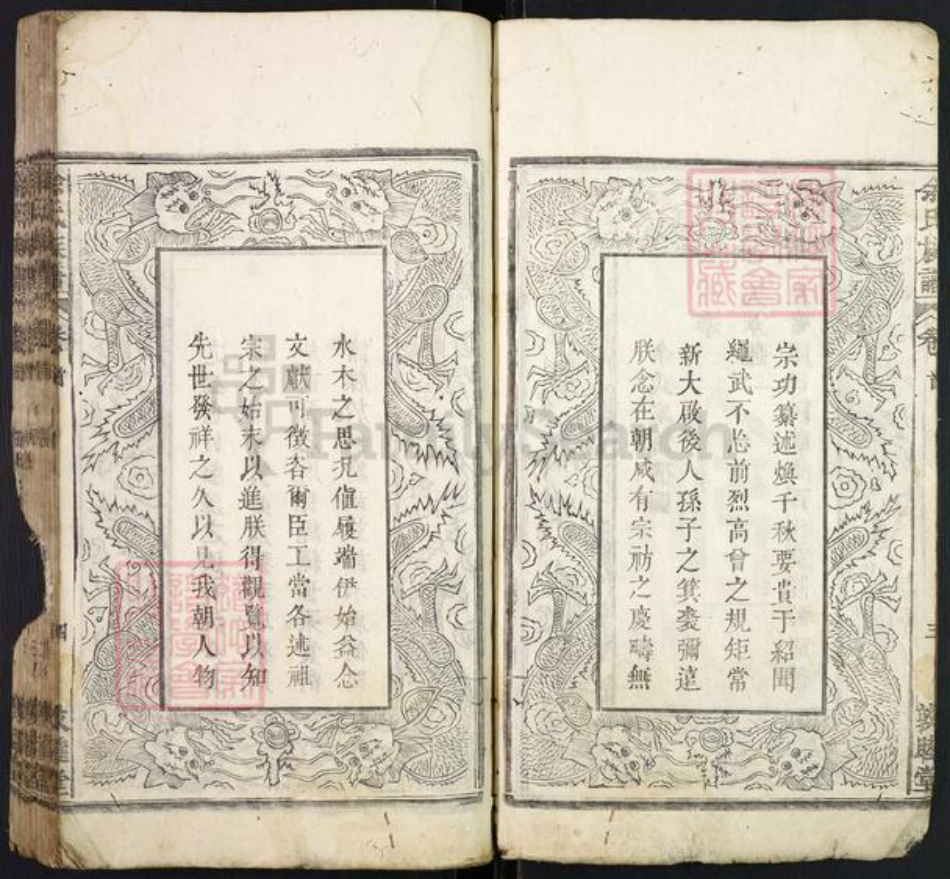 宗功纂述煥千秋要貴于紹聞
繩武不忘前烈高曾之規矩常
新大啟後人孫子之箕裘彌遠
朕念在朝咸有宗祊之慶疇無
水木之思凡值履端伊始益念
文獻可徵咨爾臣工當各述祖
宗之始末以進朕得觀覽以知
先世發祥之久以見我朝人物
氏族譜
卷首
三
四
FamilySearch